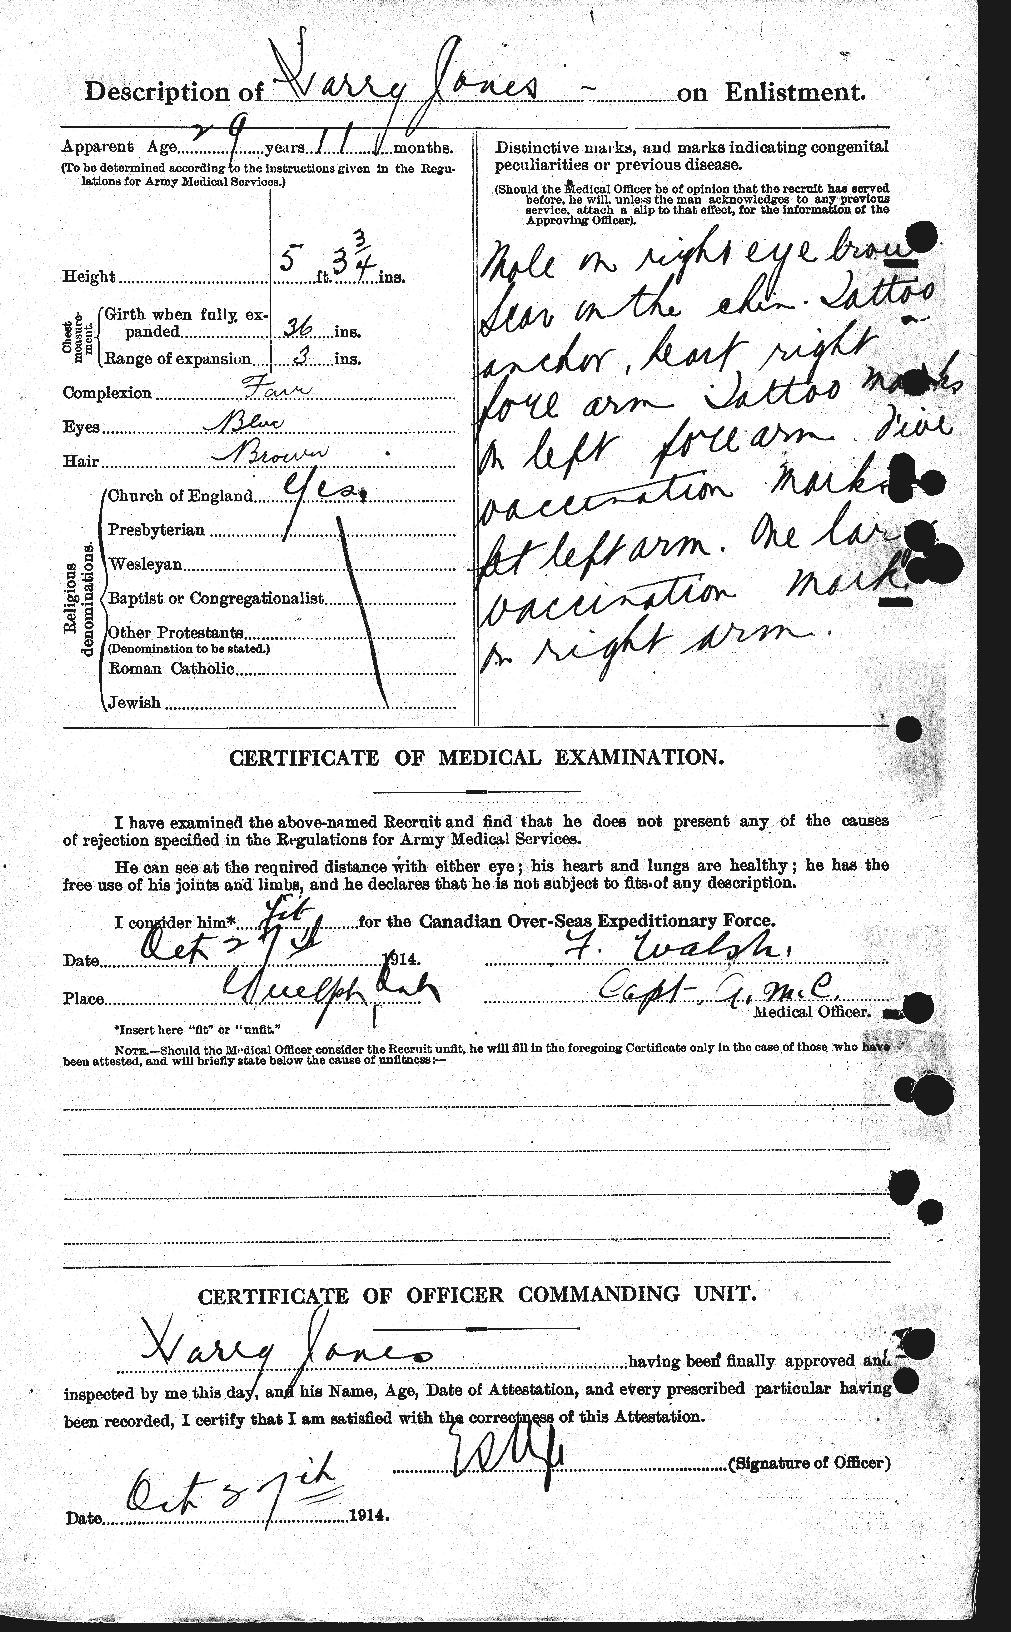 Description of Harry Jones - on Enlistment.
Apparent Age 29 years 11 months.
(To be determined according to the instructions given in the Regu-
lations for Army Medical Services.)
Height 5 ft. 3 3/4 ins.
Chest measure-ment.
Girth when fully ex-
panded 36 ins.
Range of expansion 3 ins.
Complexion Fair
Eyes Blue
Hair Brown
Religious denominations.
Church of England Yes.
Presbyterian
Wesleyan
Baptist or Congregationalist
Other Protestants
(Denomination to be stated.)
Roman Catholic
Jewish
Distinctive marks, and marks indicating congenital
peculiarities or previous disease.
(Should the Medical Officer be of opinion that the recruit has served
before, he will, unless the man acknowledges to any previous
service, attach a slip to that effect, for the information of the
Approving Officer).
Mole on right eye brow
Scar on the chin. Tattoo
anchor, heart right
fore arm Tattoo marks
on left forearm. Five
vaccination marks
left arm. One
vaccination mark
on right arm.
CERTIFICATE OF MEDICAL EXAMINATION.
I have examined the above-named Recruit and find that he does not present any of the causes
of rejection specified in the Regulations for Army Medical Services.
He can see at the required distance with either eye; his heart and lungs are healthy; he has the
free use of his joints and limbs, and he declares that he is not subject to fits of any description.
I consider him* fit for the Canadian Over-Seas Expeditionary Force.
Date Oct 27th 1914.
F. Walsh.
Place Guelph Ont
Capt. A.M.C.
Medical Officer.
*Insert here "fit" or "unfit."
NOTE.—Should the Medical Officer consider the Recruit unfit, he will fill in the foregoing Certificate only in the case of those who have
been attested, and will briefly state below the cause of unfitness:—
CERTIFICATE OF OFFICER COMMANDING UNIT.
Harry Jones having been finally approved and
inspected by me this day, and his Name, Age, Date of Attestation, and every prescribed particular having
been recorded, I certify that I am satisfied with the correctness of this Attestation.
(Signature of Officer)
Date Oct 27th 1914.